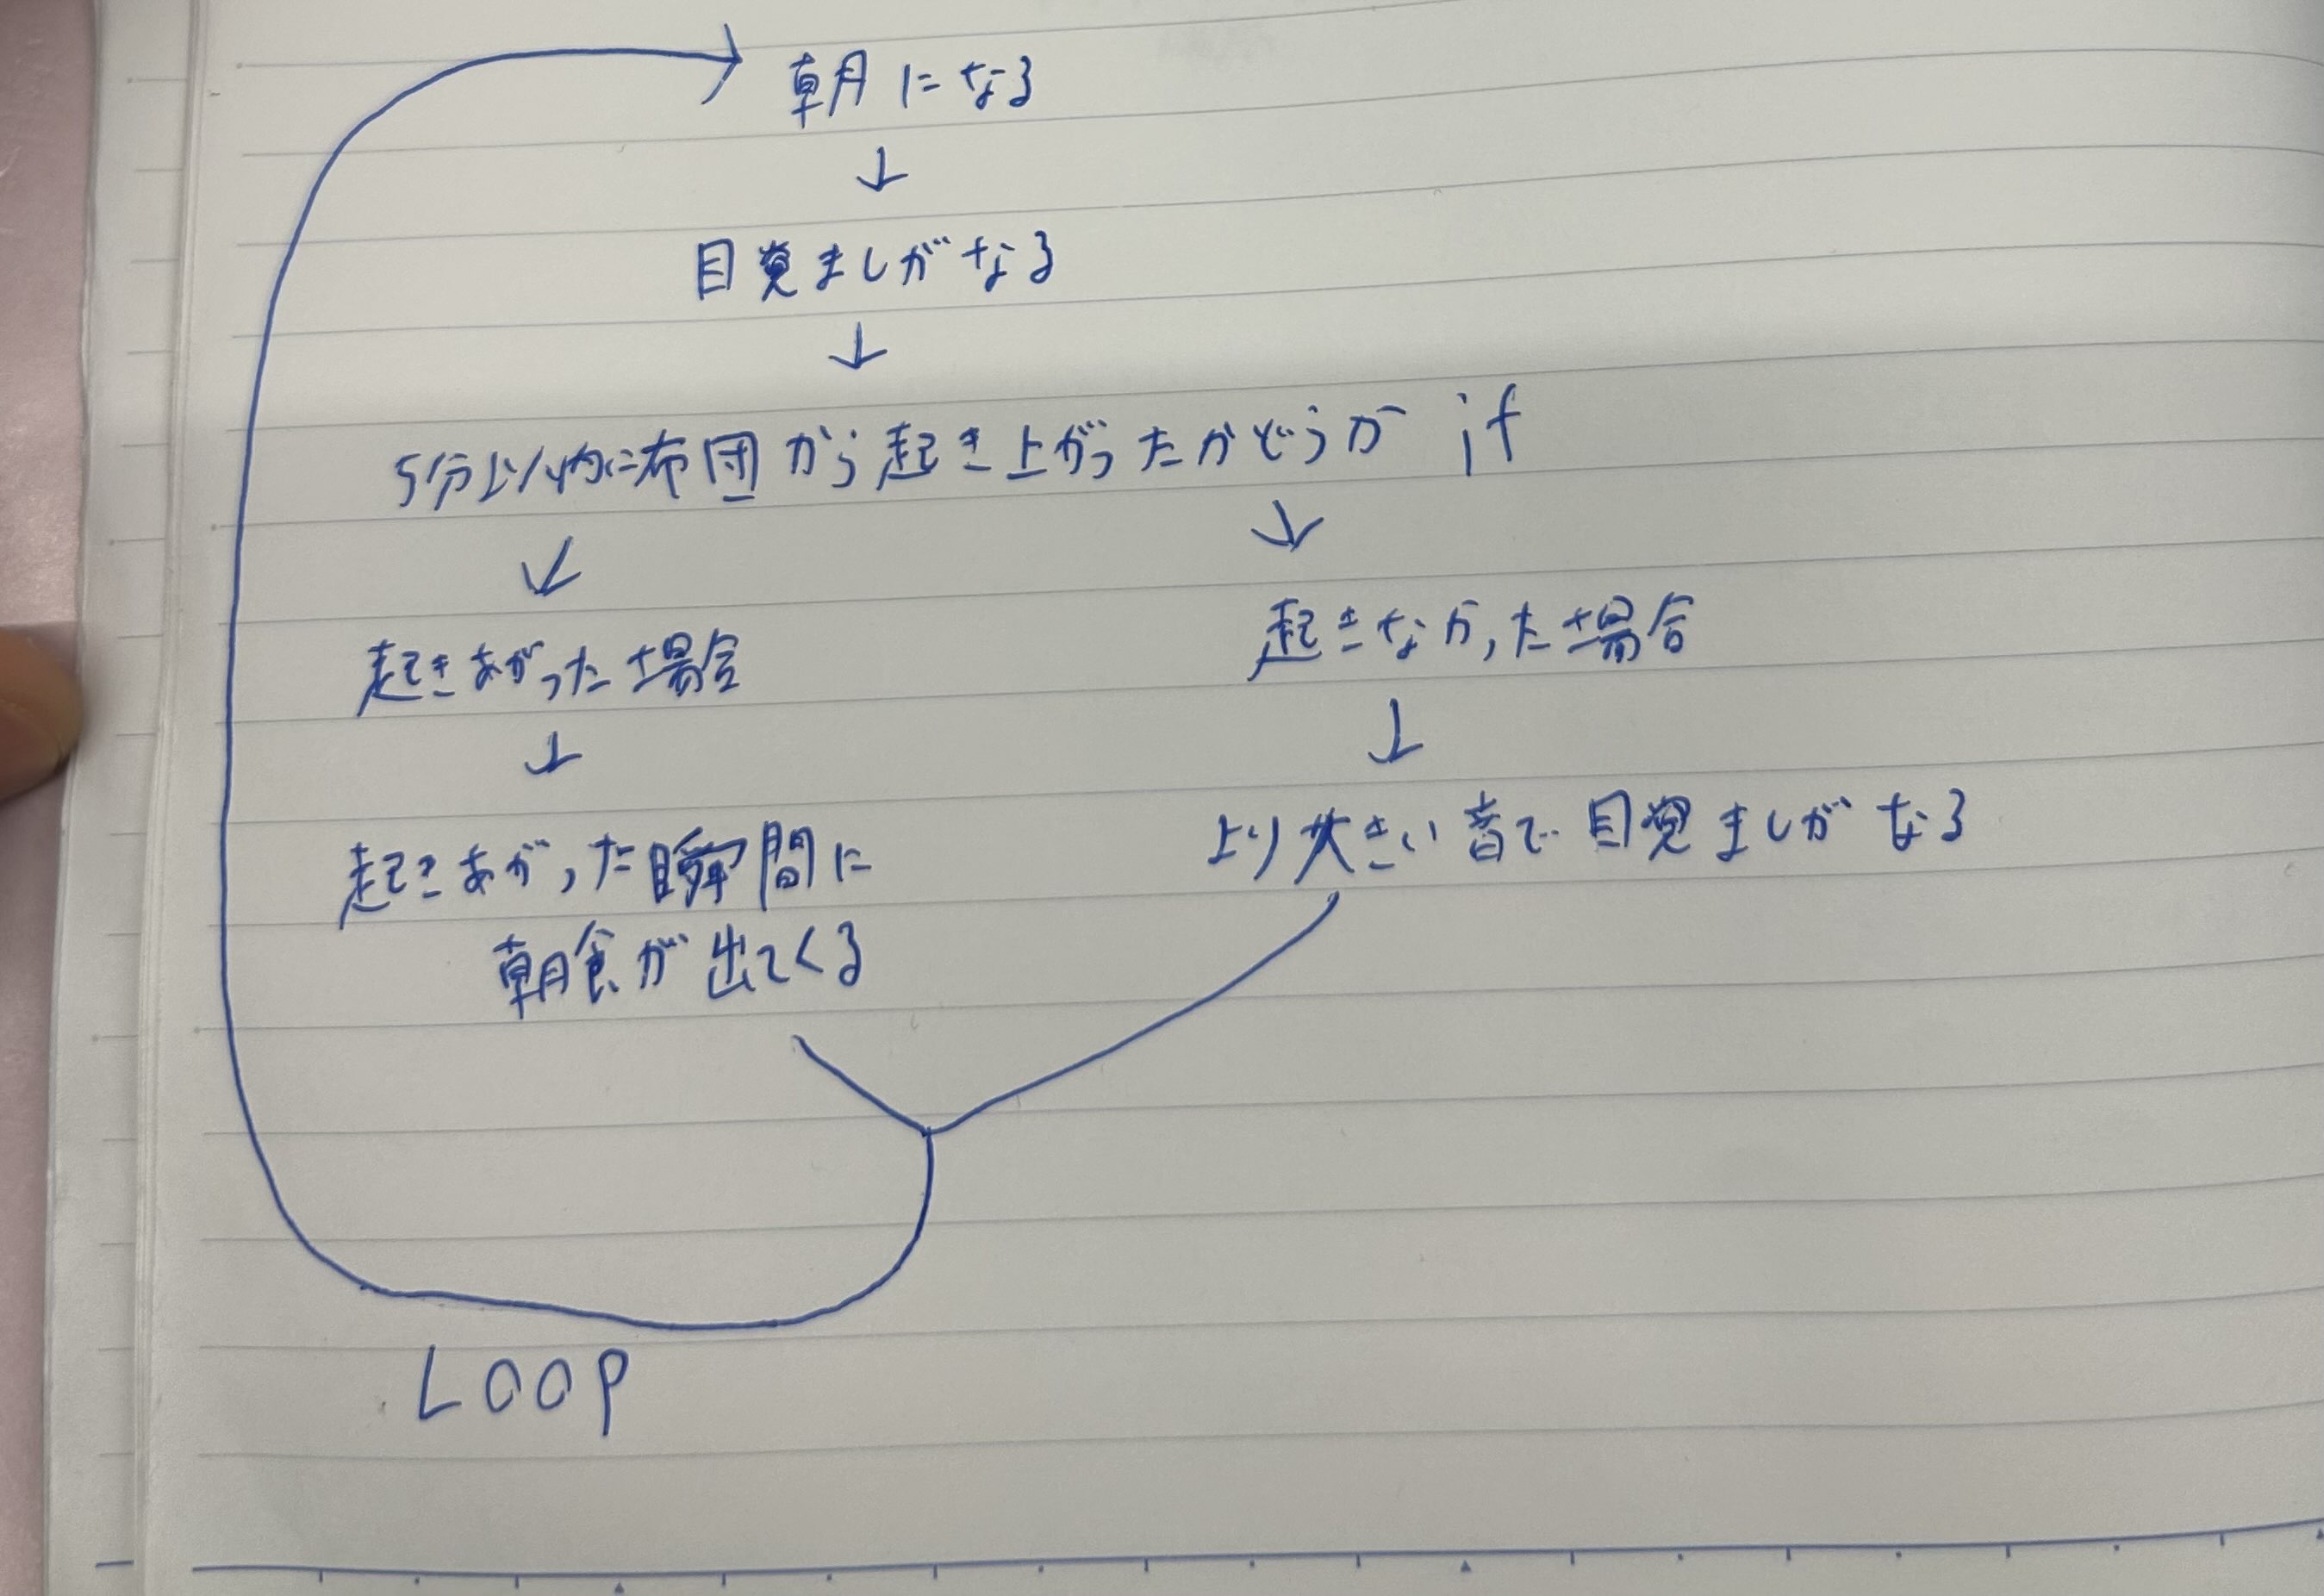 朝になる
↓
目覚ましがなる
↓
5分以内に布団から起き上がったかどうか if
↓ ↓
起きあがった場合
起きなかった場合
↓ ↓
起きあがった瞬間に
朝食が出てくる
より大きい音で目覚ましがなる
LOOP